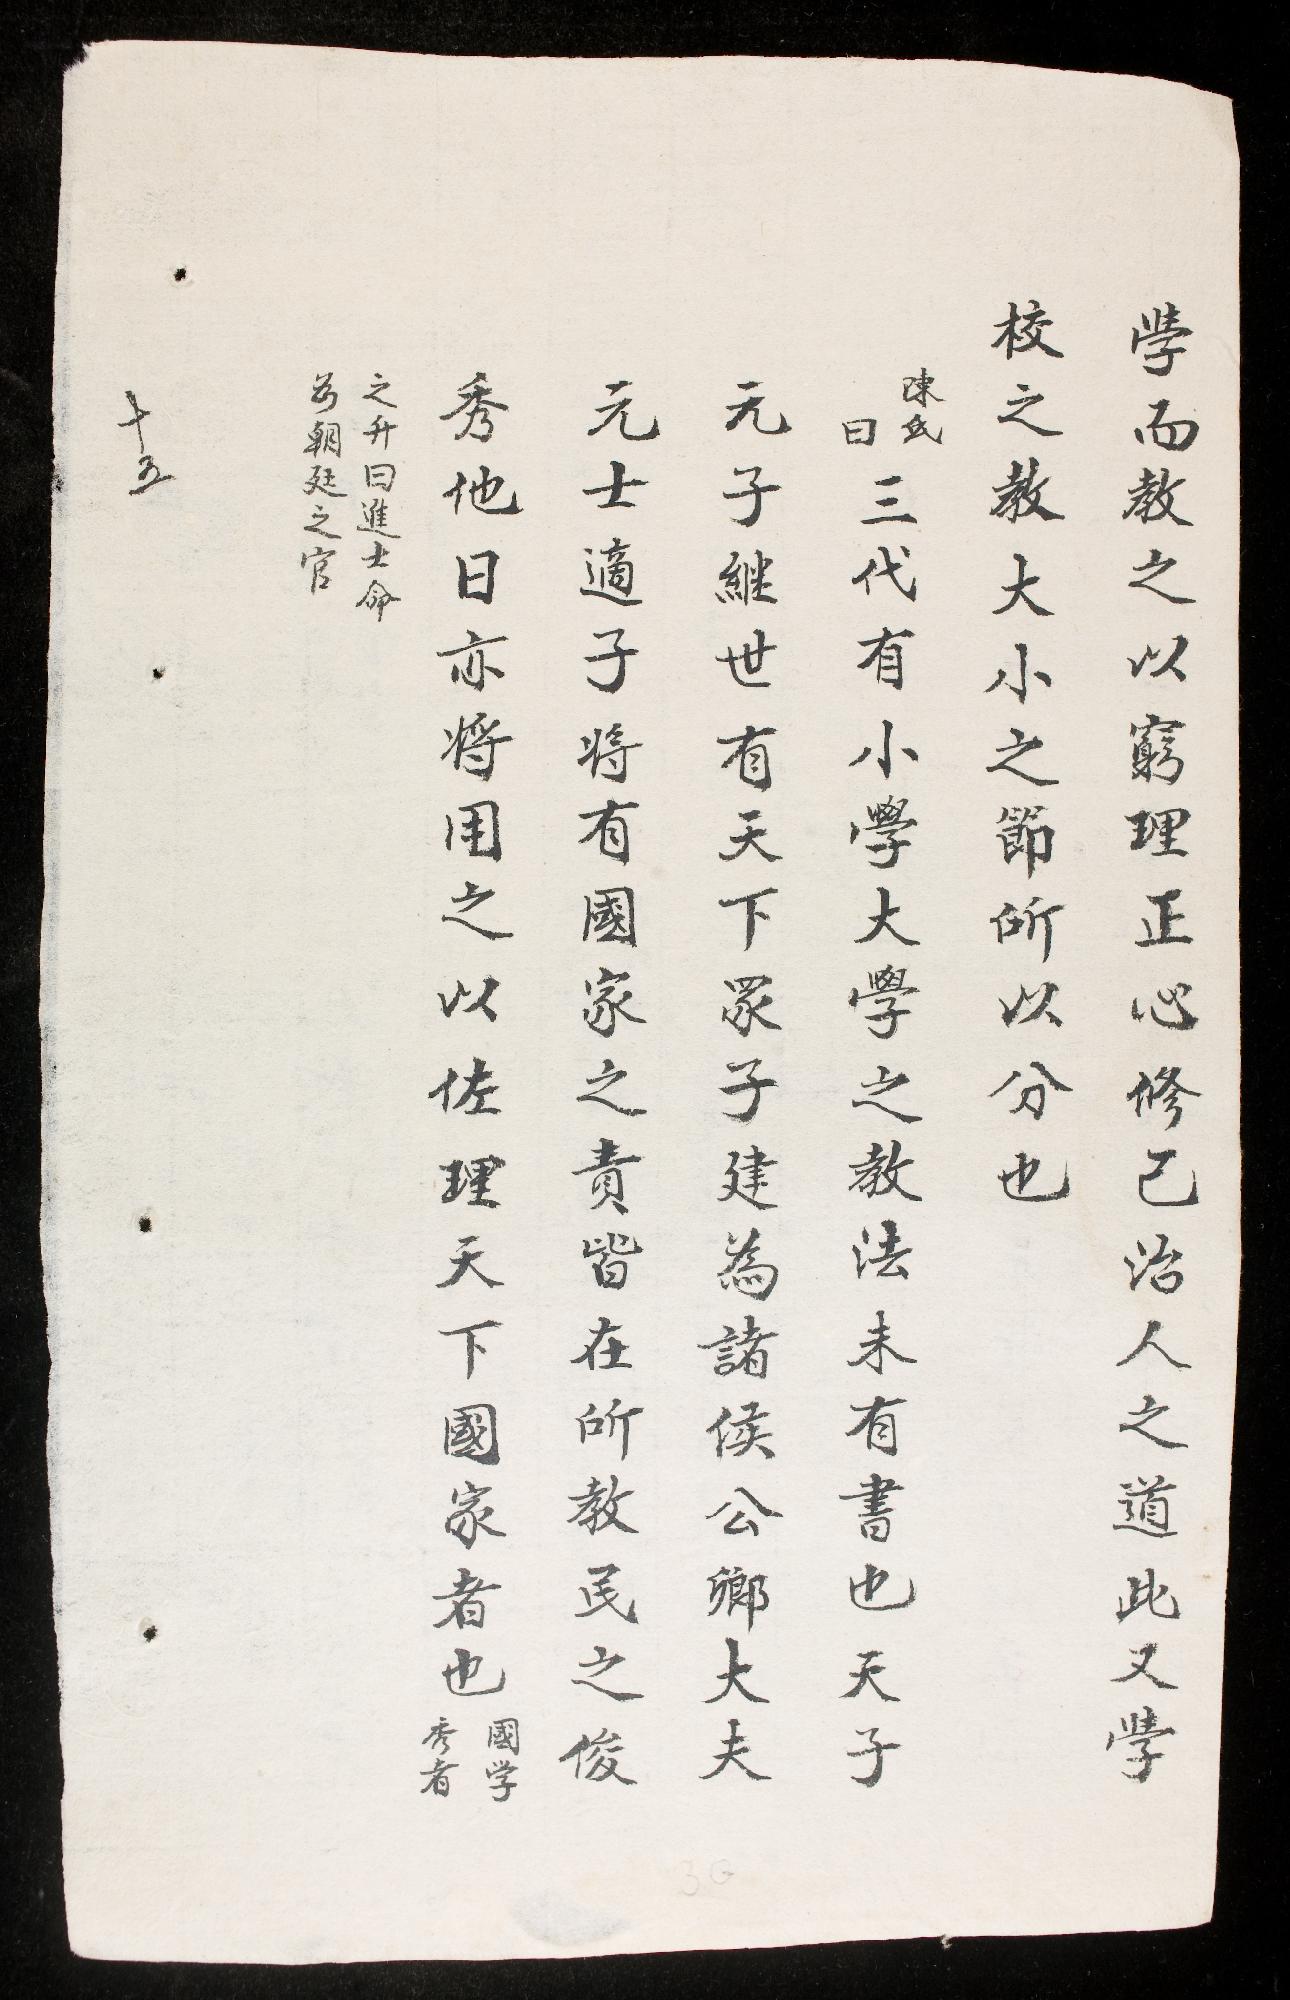 學而教之以窮理正心修己治人之道此又學
校之教大小之節所以分也
陳氏
曰
三代有小學大學之教法未有書也天子
元子継世有天下冢子建為諸侯公卿大夫
元士適子將有國家之責皆在所教民之俊
秀他日亦將用之以佐理天下國家者也
國学
秀者
之升曰進士命
為朝廷之官
十五
3G